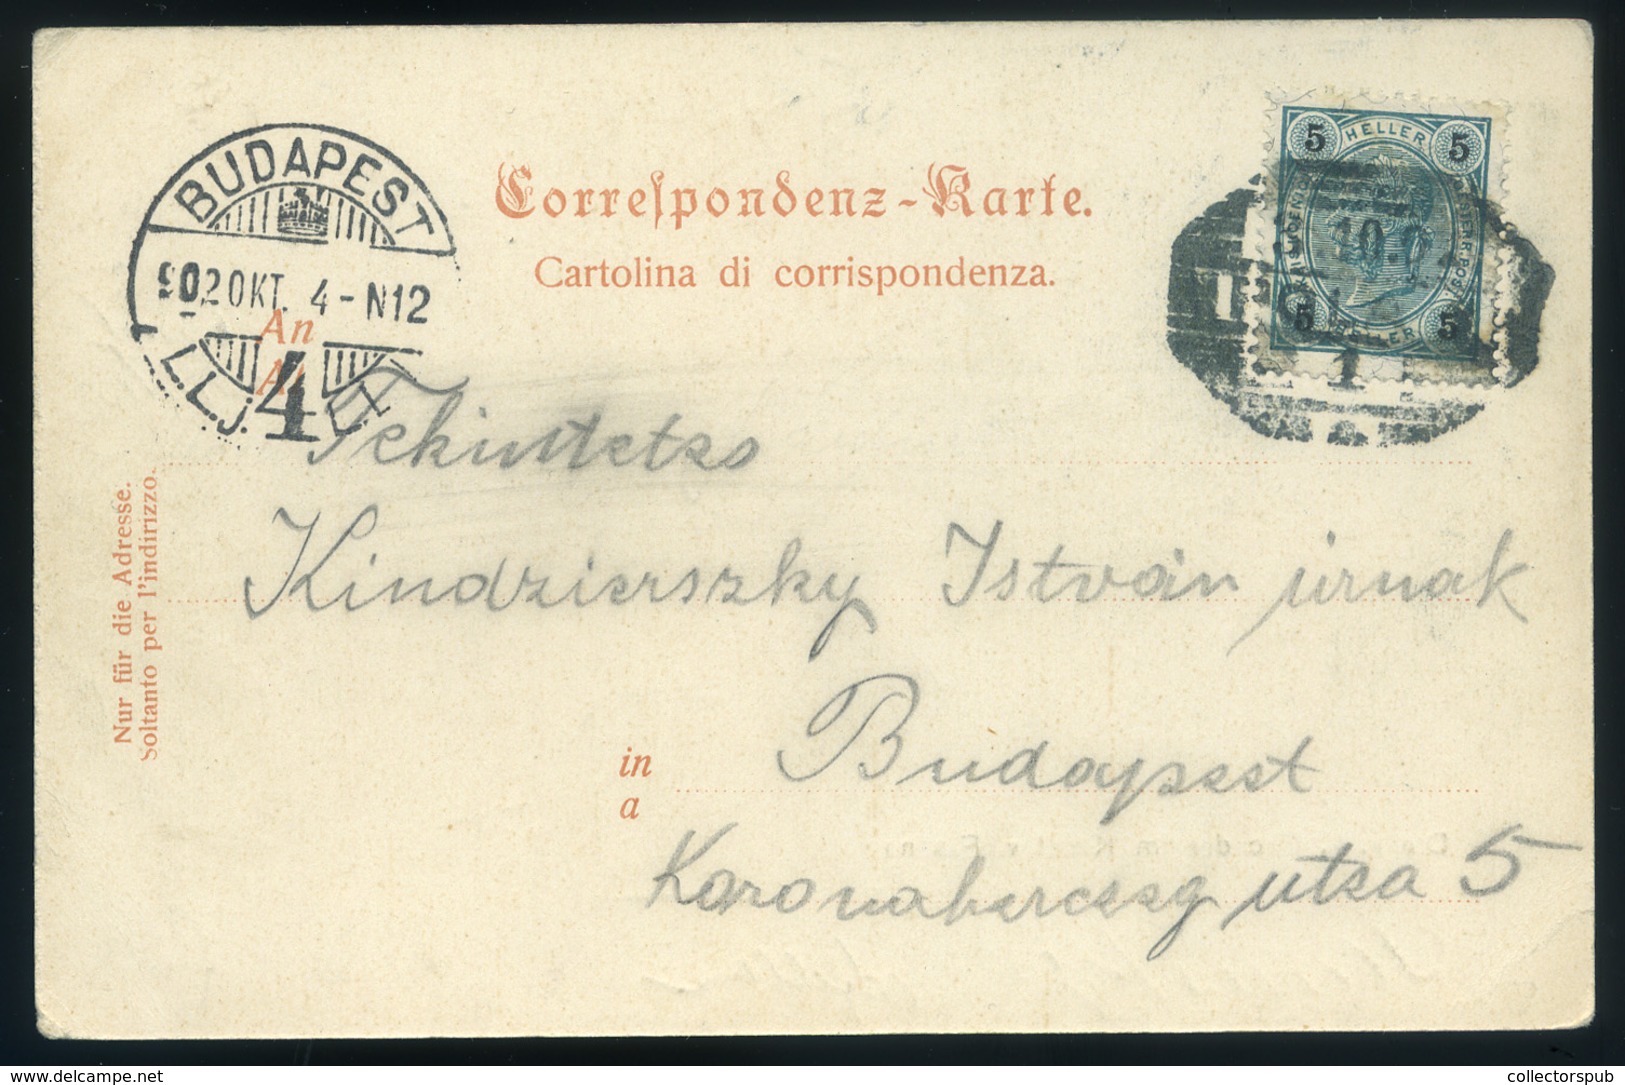 Correspondenz-Karte.
Cartolina di corrispondenza.
BUDAPEST
902 OKT. 4-N12
4
5 HELLER 5
5 HELLER 5
10.
1
An
Tekintetes
Kindzierszky István úrnak
in Budapest
a
Koronaherczeg utsa 5
Nur für die Adresse.
Soltanto per l'indirizzo
collectorspub